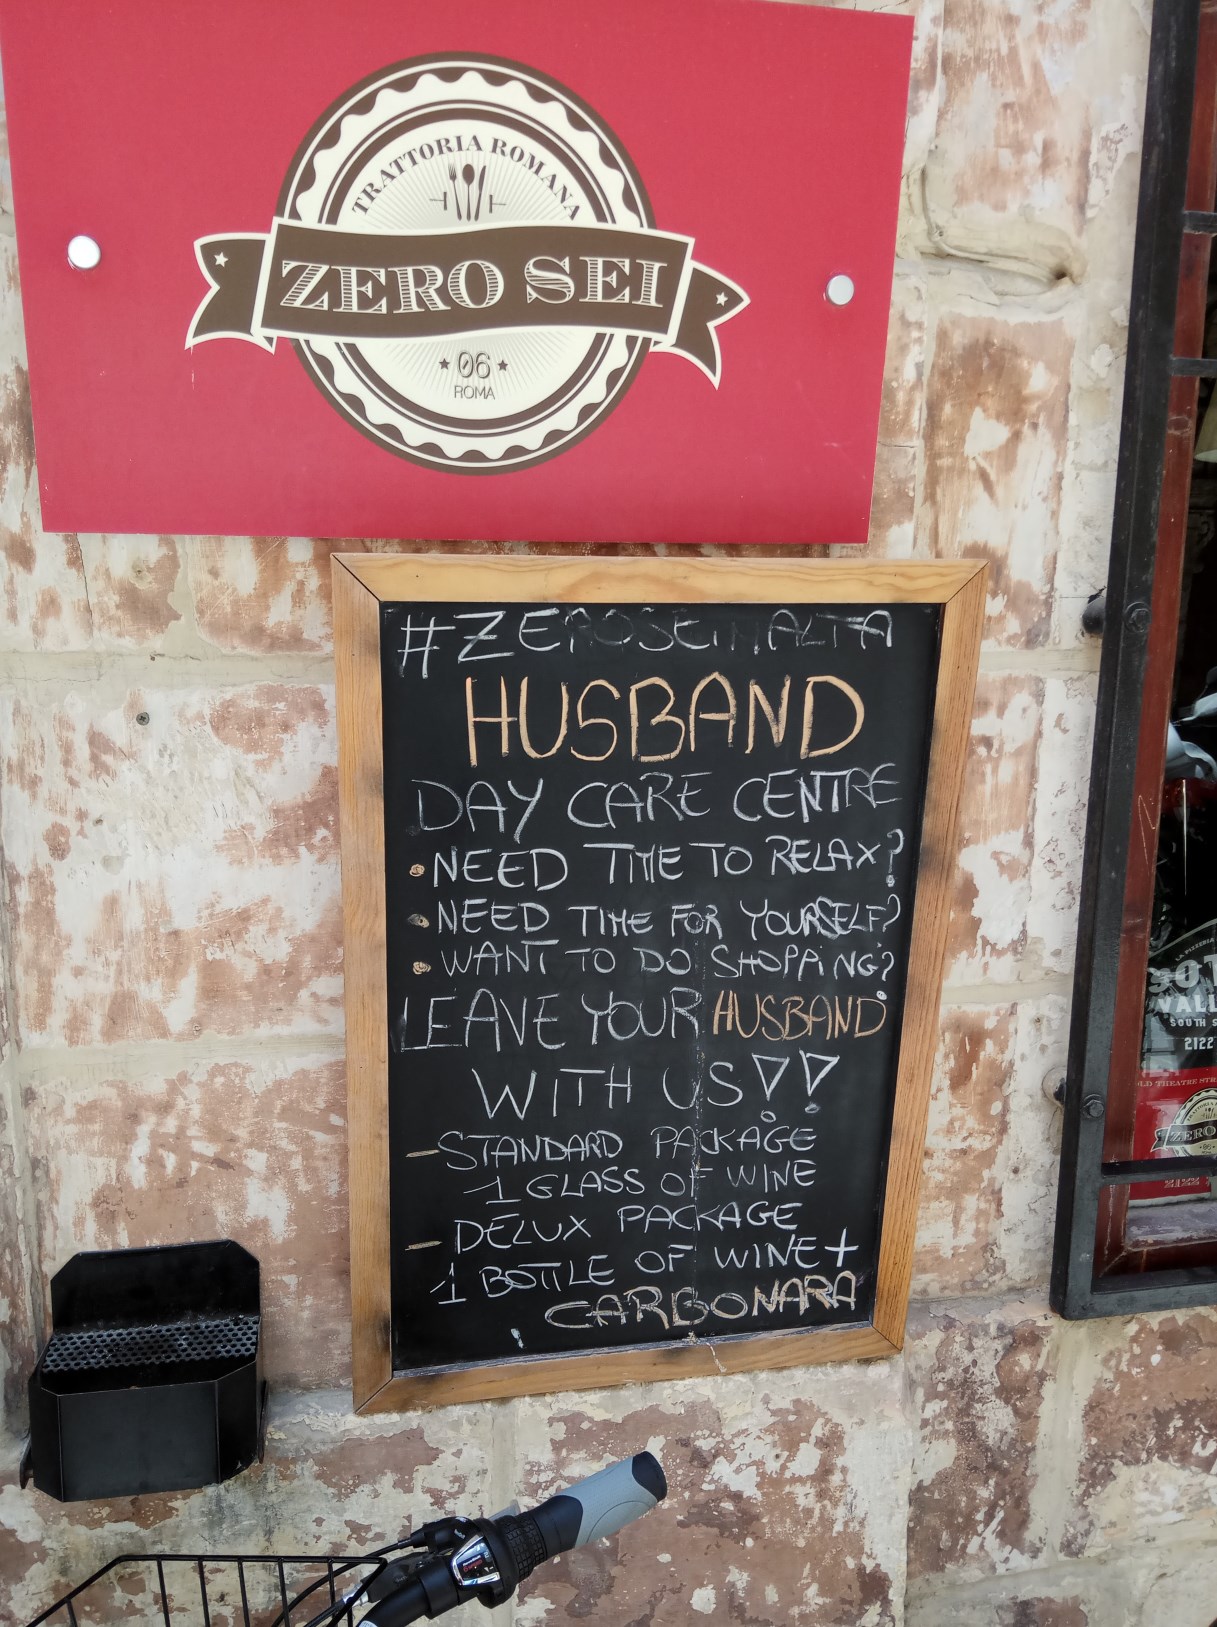 TRATTORIA ROMANA
ZERO SEI
06
ROMA
#ZEROSEIMALTA
HUSBAND
DAY CARE CENTRE
• NEED TIME TO RELAX?
• NEED TIME FOR YOURSELF?
• WANT TO DO SHOPPING?
LEAVE YOUR HUSBAND
WITH US!!
- STANDARD PACKAGE
1 GLASS OF WINE
- DELUX PACKAGE
1 BOTTLE OF WINE +
CARBONARA
LA PIZZERIA
SOUTH S
2122
OLD THEATRE STR
ZERO